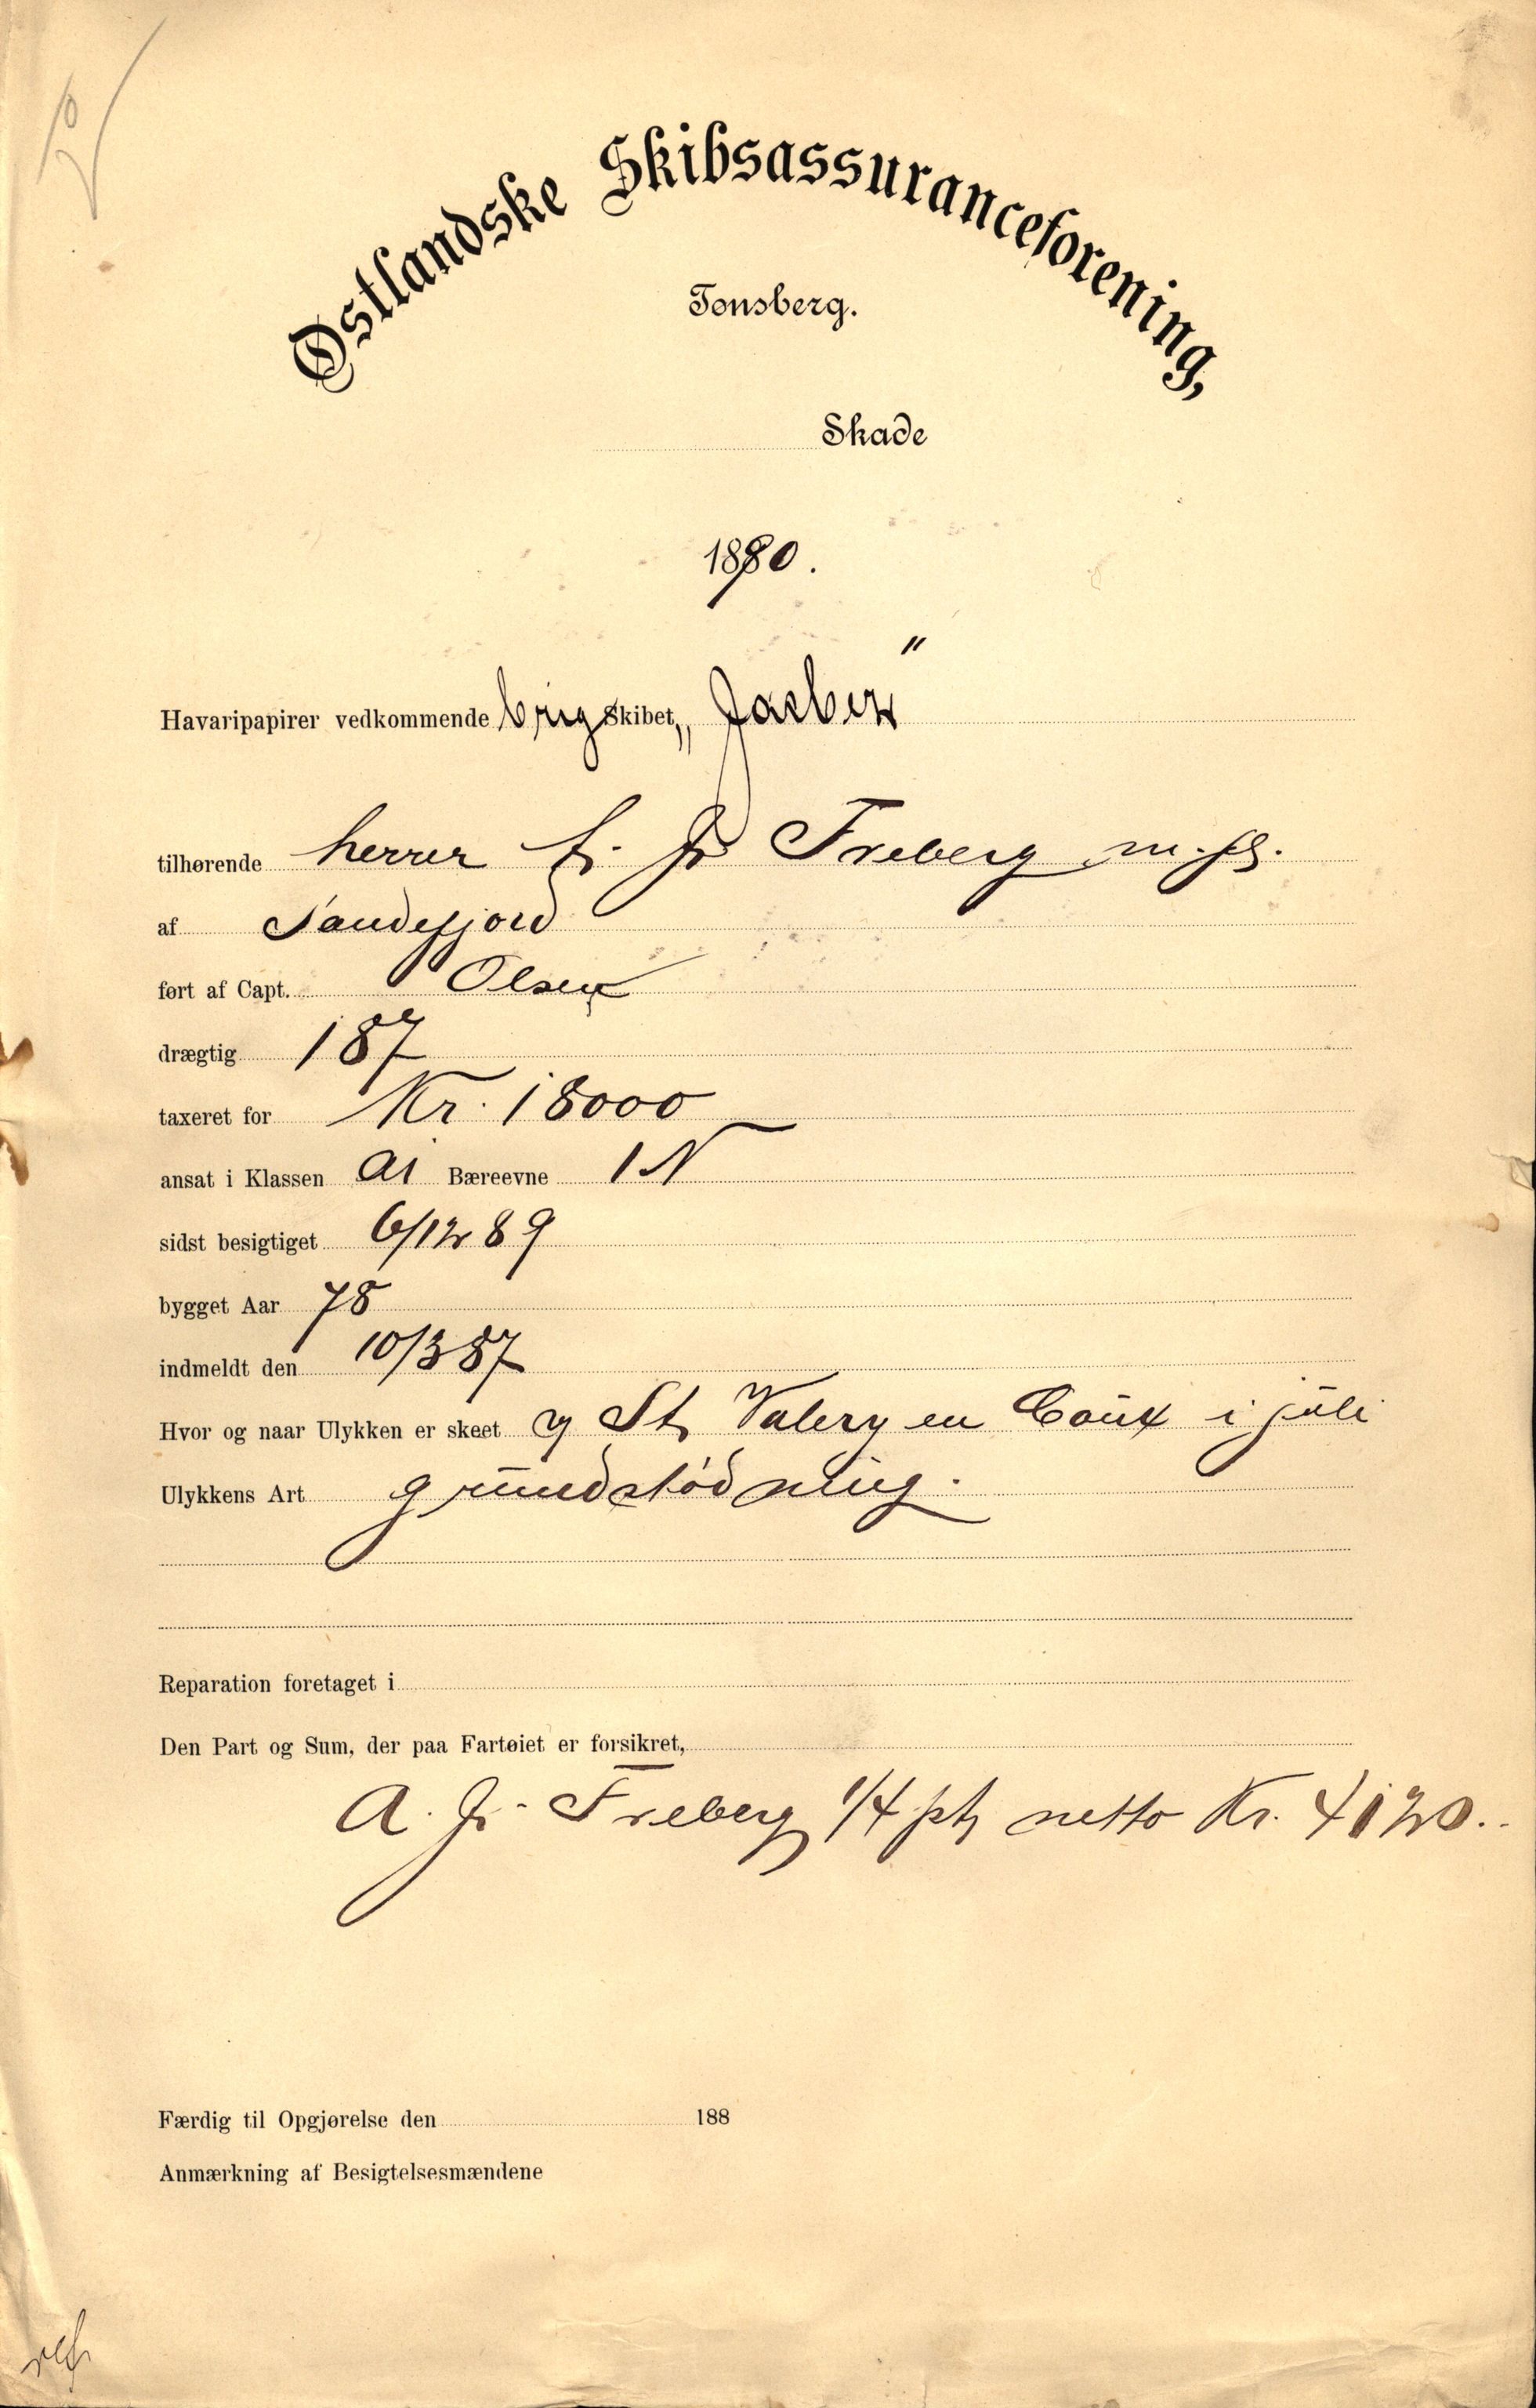 Østlandske Skibsassuranceforening,
Tønsberg.
Skade
1890.
Havaripapirer vedkommende brig Skibet „Jarbex"
tilhørende herrer Fr. Freberg m. fl.
af Sandefjord
ført af Capt. Olsen
drægtig 187
taxeret for Kr. 18000
ansat i Klassen A1 Bæreevne 1 N
sidst besigtiget 6/12 89
bygget Aar 78
indmeldt den 10/3 87
Hvor og naar Ulykken er skeet St. Valery en Caux i juli
Ulykkens Art grundstødning.
Reparation foretaget i
Den Part og Sum, der paa Fartøiet er forsikret,
A. Fr. Freberg 1/4 pt netto Kr. 4120..
Færdig til Opgjørelse den 188
Anmærkning af Besigtelsesmændene